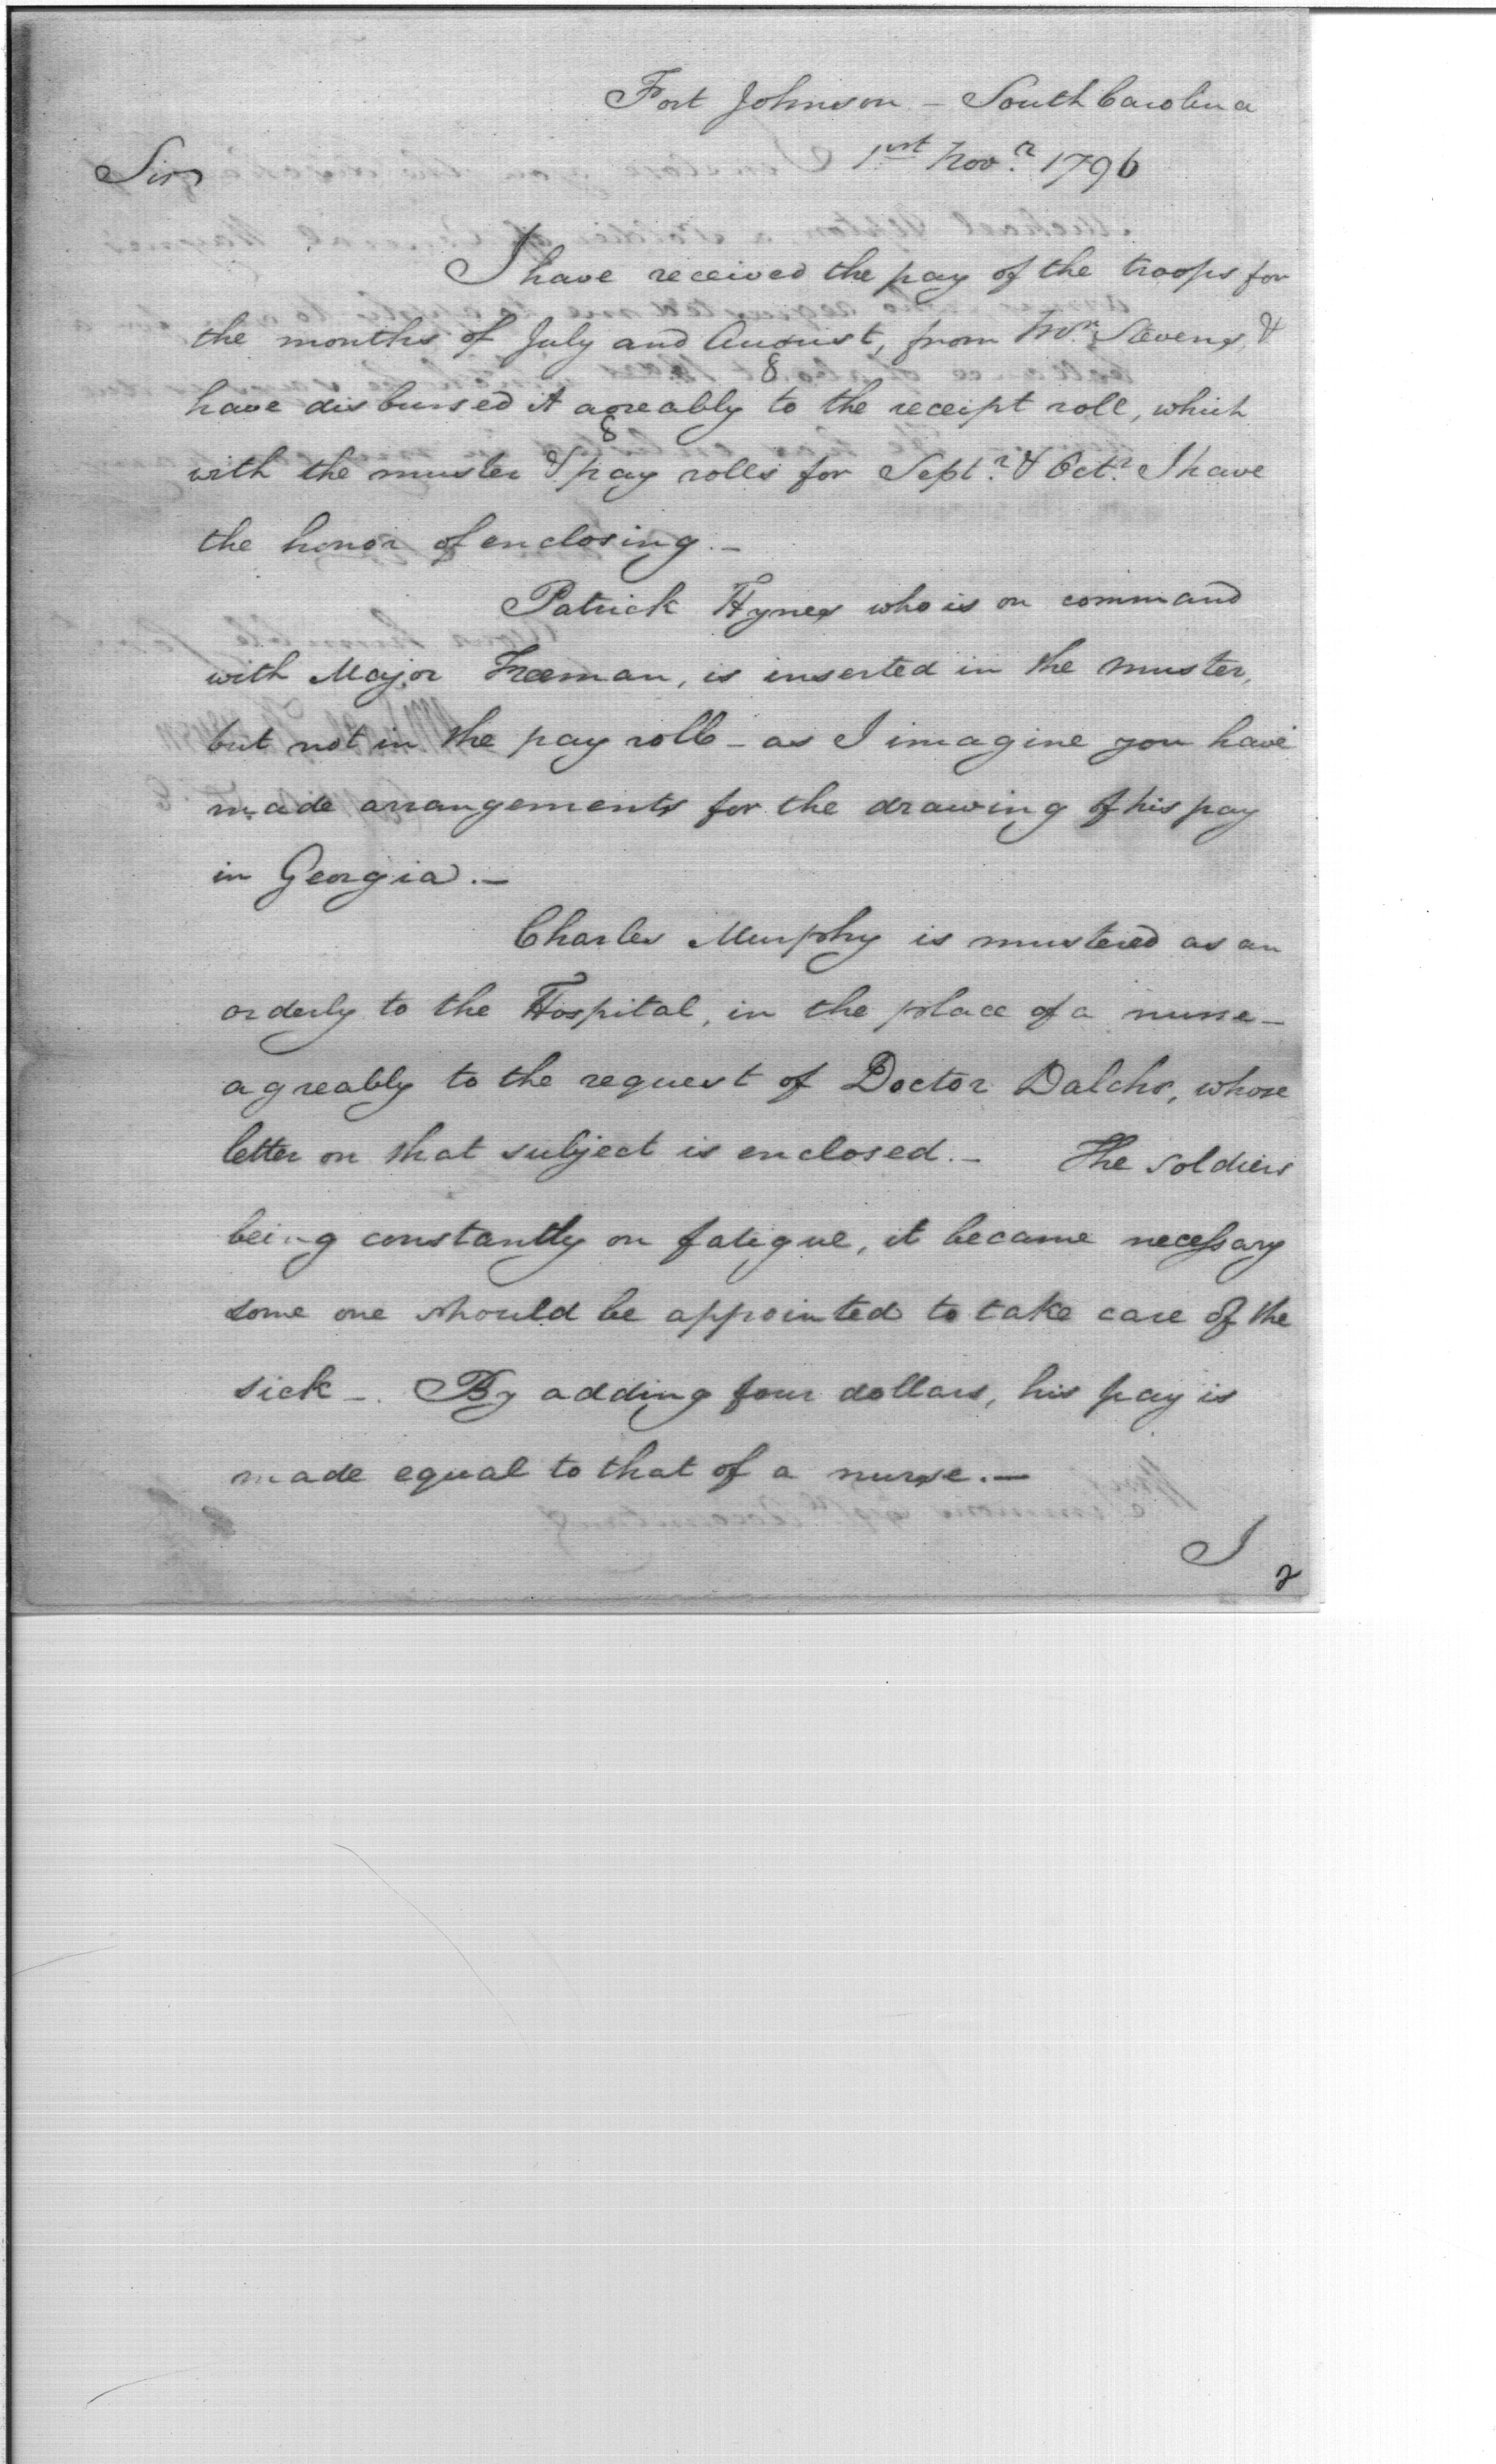 Fort Johnson - South Carolina
1st Novr. 1796
Sir
I have received the pay of the troops for
the months of July and August, from Mr. Stevens, &
have disbursed it agreably to the receipt roll, which
with the muster & pay rolls for Septr. & Octr. I have
the honor of enclosing. -
Patrick Hynes who is on command
with Major Freeman, is inserted in the muster,
but not in the pay roll - as I imagine you have
made arrangements for the drawing of his pay
in Georgia. -
Charles Murphy is mustered as an
orderly to the Hospital, in the place of a nurse -
agreably to the request of Doctor Dalcho, whose
letter on that subject is enclosed. - The soldiers
being constantly on fatigue, it became necessary
some one should be appointed to take care of the
sick -. By adding four dollars, his pay is
made equal to that of a nurse. -
I
2